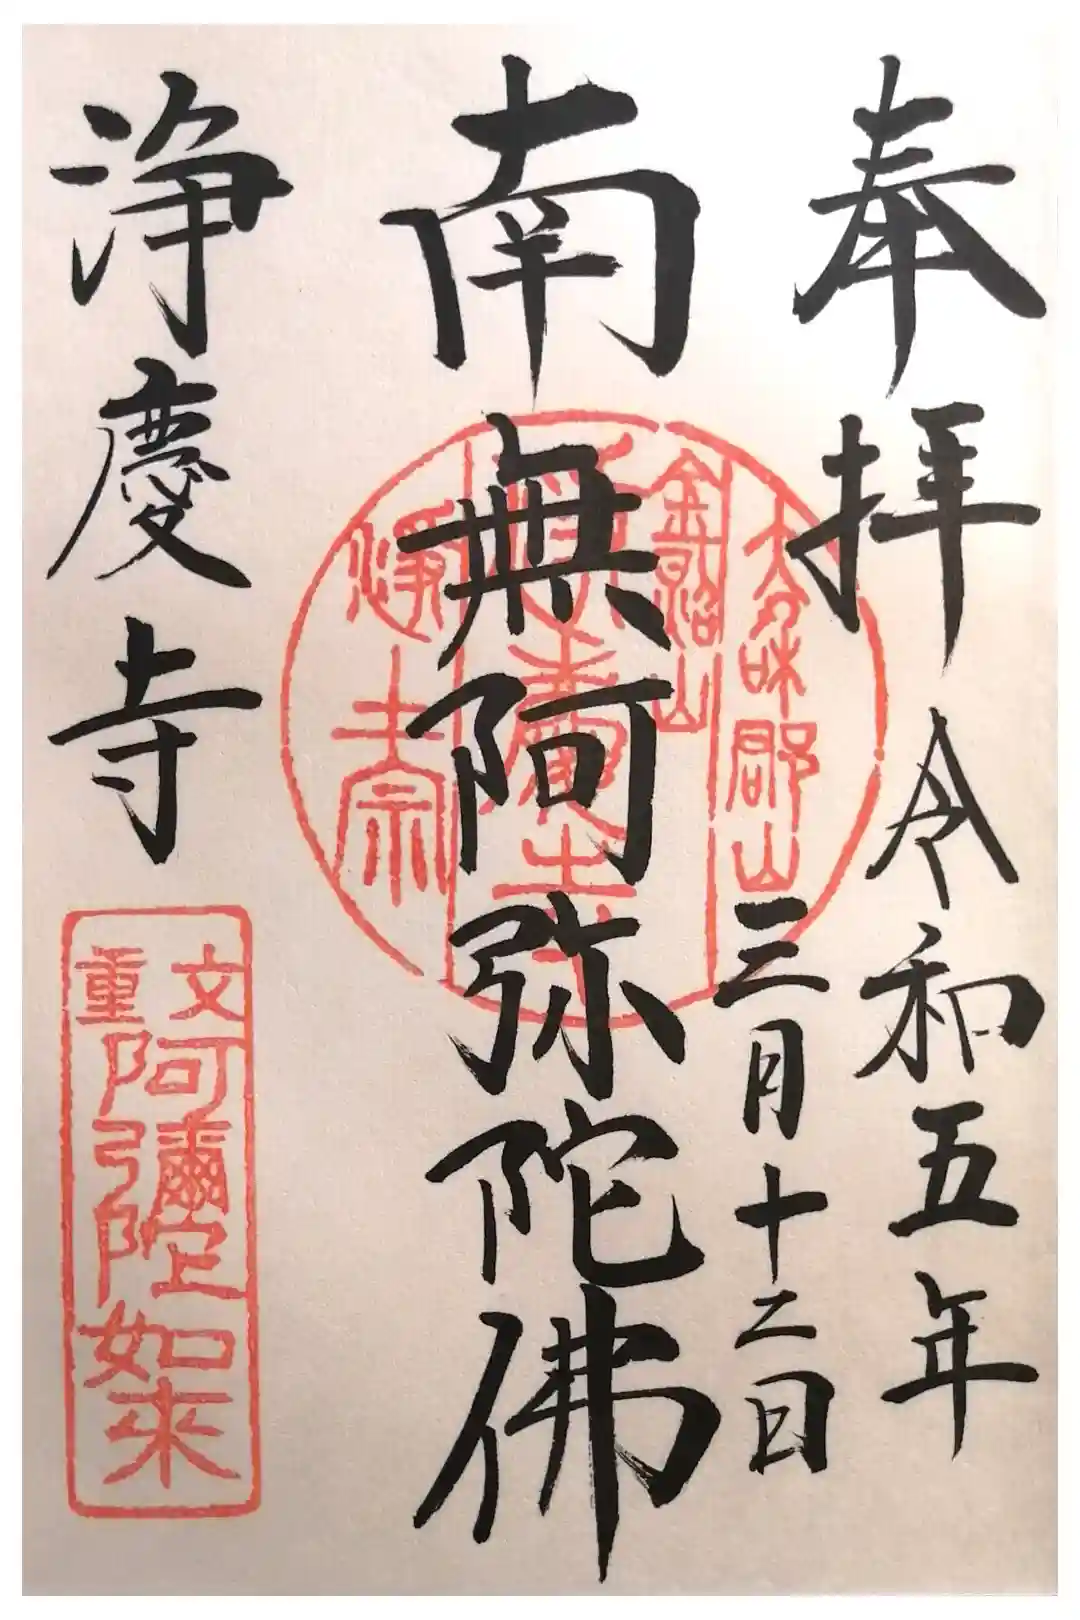 奉拝
令和五年
三月十二日
南無阿弥陀佛
浄慶寺
大和郡山
浄土宗
文重
阿彌陀如来